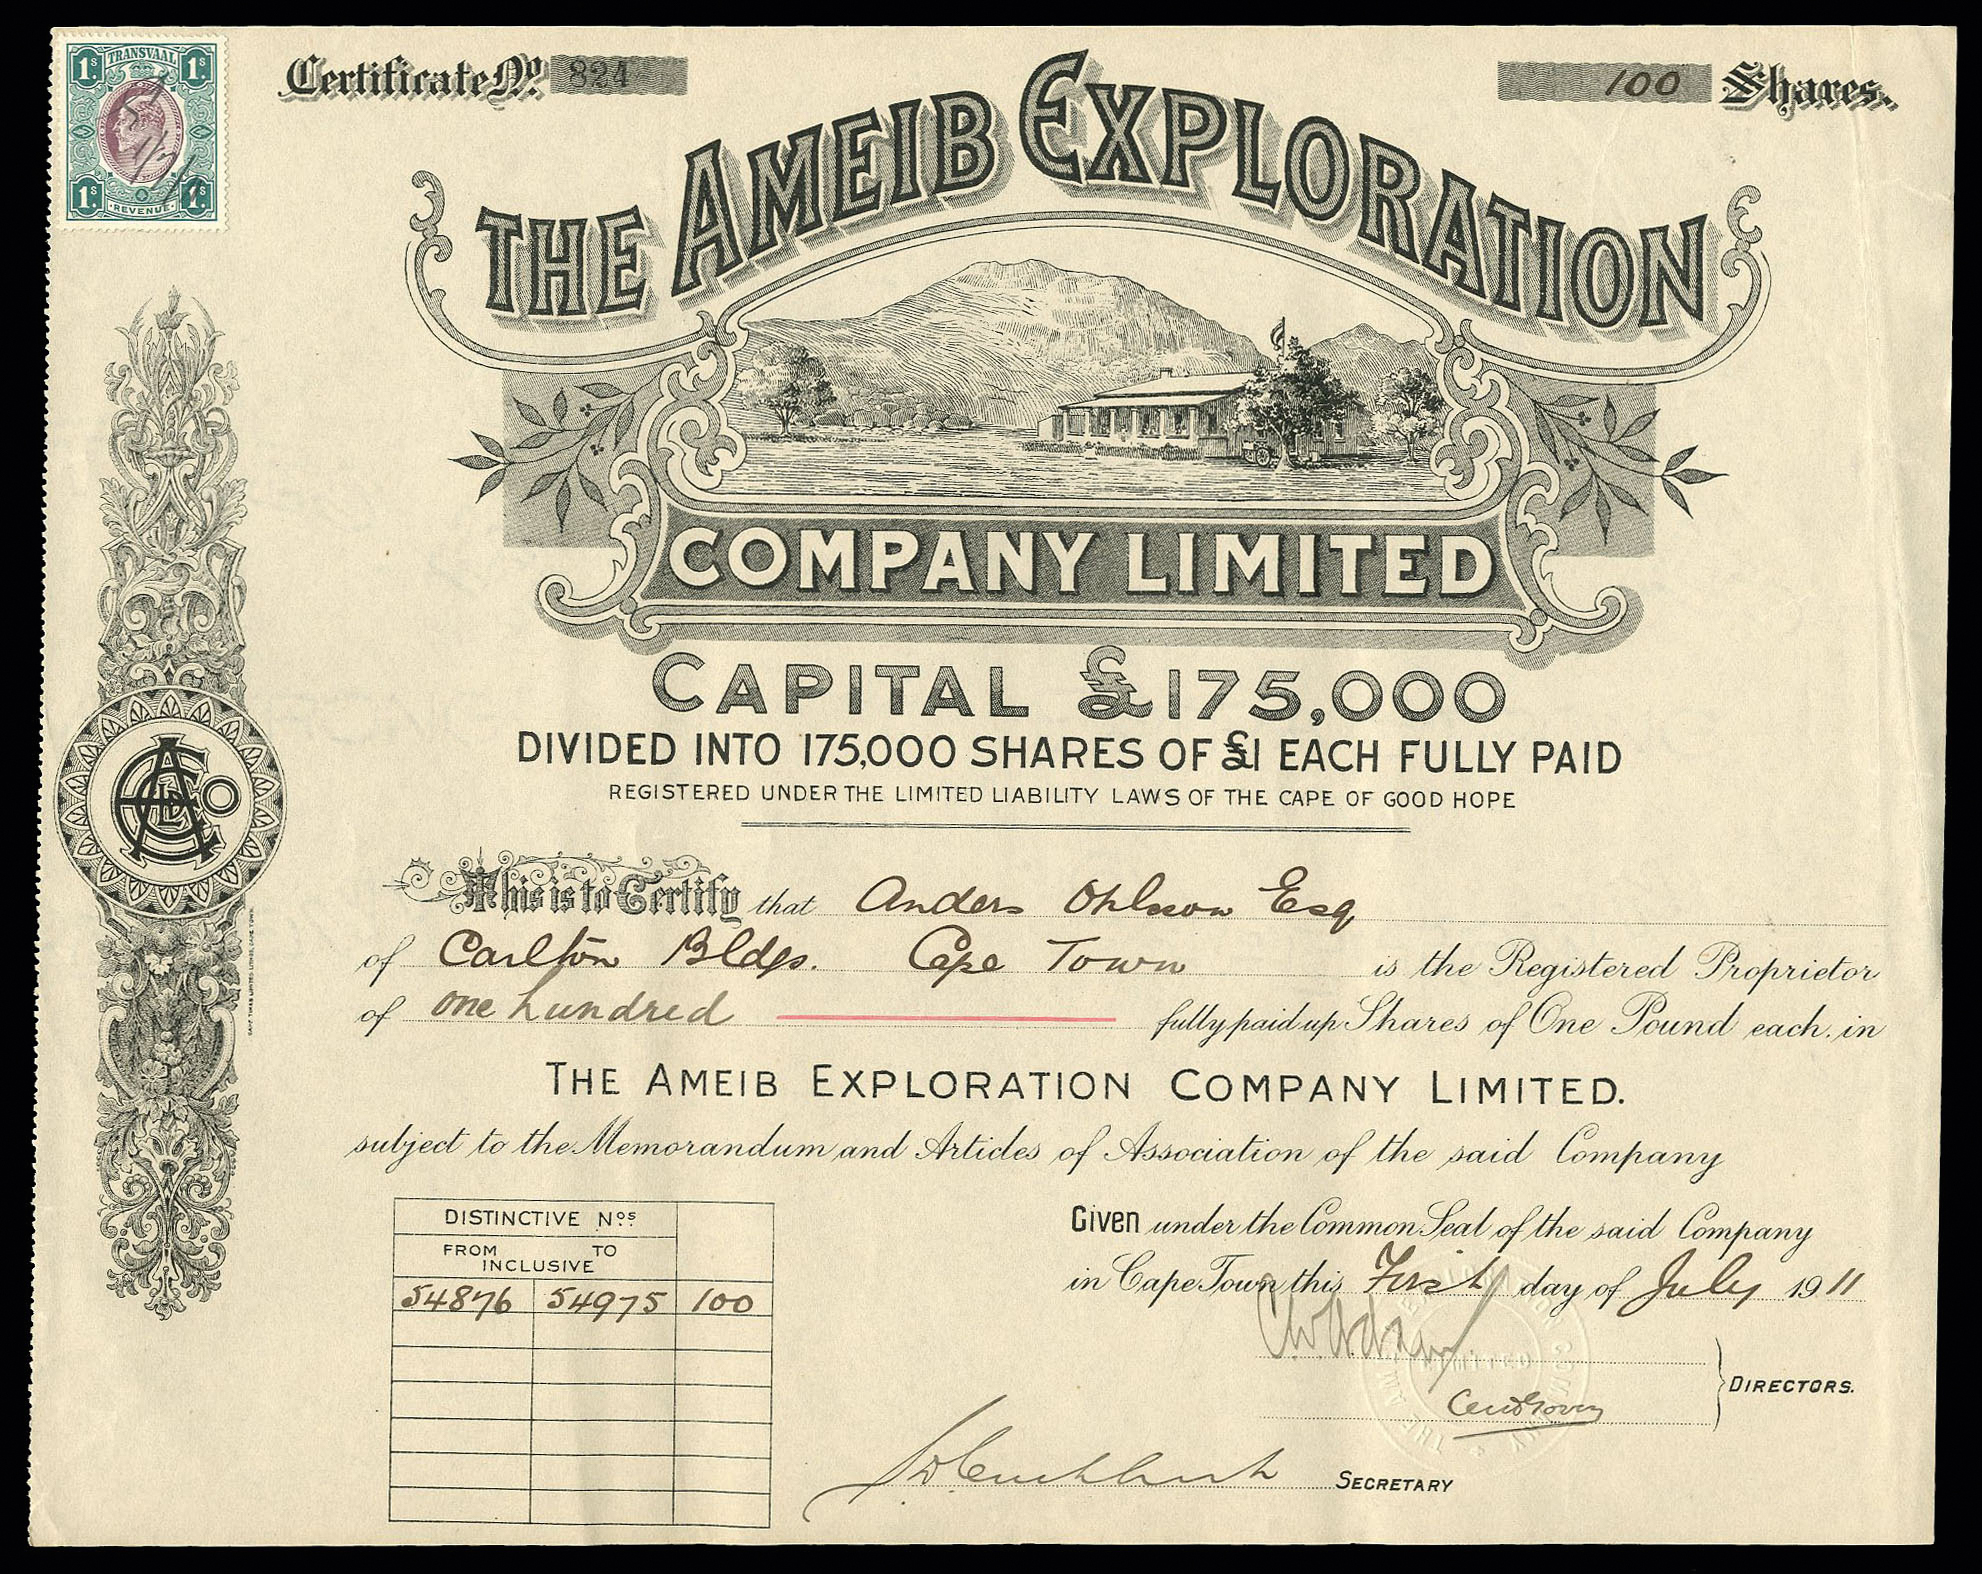 TRANSVAAL
1s. 1s.
1s. 1s.
REVENUE
Certificate No. 824
100 Shares.
THE AMEIB EXPLORATION
COMPANY LIMITED
CAPITAL £175,000
DIVIDED INTO 175,000 SHARES OF £1 EACH FULLY PAID
REGISTERED UNDER THE LIMITED LIABILITY LAWS OF THE CAPE OF GOOD HOPE
This is to Certify that Anders Ohlsson Esq
of Carlton Bldgs. Cape Town is the Registered Proprietor
of one hundred fully paid up Shares of One Pound each in
THE AMEIB EXPLORATION COMPANY LIMITED.
subject to the Memorandum and Articles of Association of the said Company
DISTINCTIVE Nos.
FROM TO
INCLUSIVE
54876 54975 100
Given under the Common Seal of the said Company
in Cape Town this First day of July 1911
DIRECTORS.
SECRETARY
CAPE TIMES LIMITED LITHO, CAPE TOWN.